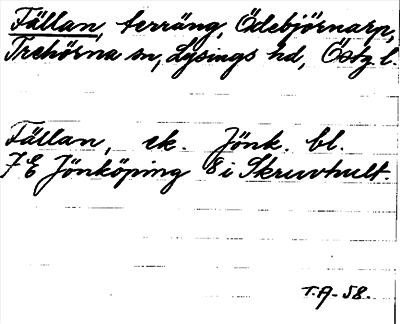 Fällan, terräng, Ödebjörnarp,
Trehörna sn, Lysings hd, Östg. l.
Fällan, ek. Jönk. bl.
7 E Jönköping 8 i Skruvhult.
T.A-58.